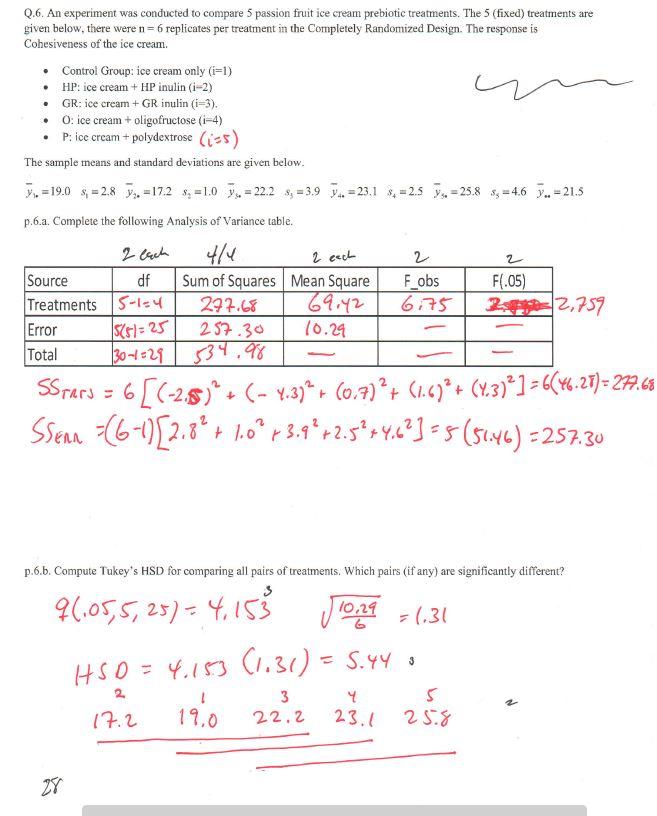 Q.6. An experiment was conducted to compare 5 passion fruit ice cream prebiotic treatments. The 5 (fixed) treatments are
given below, there were n = 6 replicates per treatment in the Completely Randomized Design. The response is
Cohesiveness of the ice cream.
• Control Group: ice cream only (i=1)
• HP: ice cream + HP inulin (i=2)
• GR: ice cream + GR inulin (i=3).
• O: ice cream + oligofructose (i=4)
• P: ice cream + polydextrose (i=5)
The sample means and standard deviations are given below.
y̅₁. = 19.0 s₁ = 2.8 y̅₂. = 17.2 s₂ = 1.0 y̅₃. = 22.2 s₃ = 3.9 y̅₄. = 23.1 s₄ = 2.5 y̅₅. = 25.8 s₅ = 4.6 y̅.. = 21.5
p.6.a. Complete the following Analysis of Variance table.
2 each 4/4 2 each 2 2
Source df Sum of Squares Mean Square F_obs F(.05)
Treatments 5-1=4 277.68 69.42 6.75 2.759
Error 5(5)=25 257.30 10.29 — —
Total 30-1=29 534.98 — — —
SSTRTS = 6[(-2.5)² + (-4.3)² + (0.7)² + (1.6)² + (4.3)²] = 6(46.28) = 277.68
SSERR = (6-1)[2.8² + 1.0² + 3.9² + 2.5² + 4.6²] = 5(51.46) = 257.30
p.6.b. Compute Tukey's HSD for comparing all pairs of treatments. Which pairs (if any) are significantly different?
q(.05,5,25) = 4.153 3 √(10.29/6) = 1.31
HSD = 4.153 (1.31) = 5.44 3
2 1 3 4 5
17.2 19.0 22.2 23.1 25.8 2
28